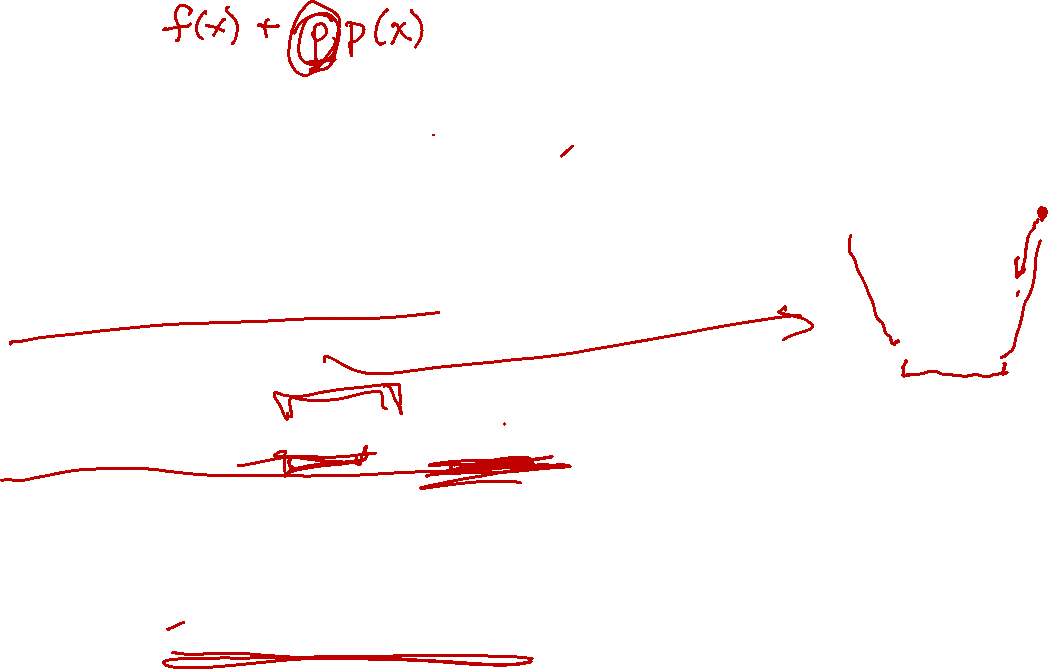 f(x) + P p(x)